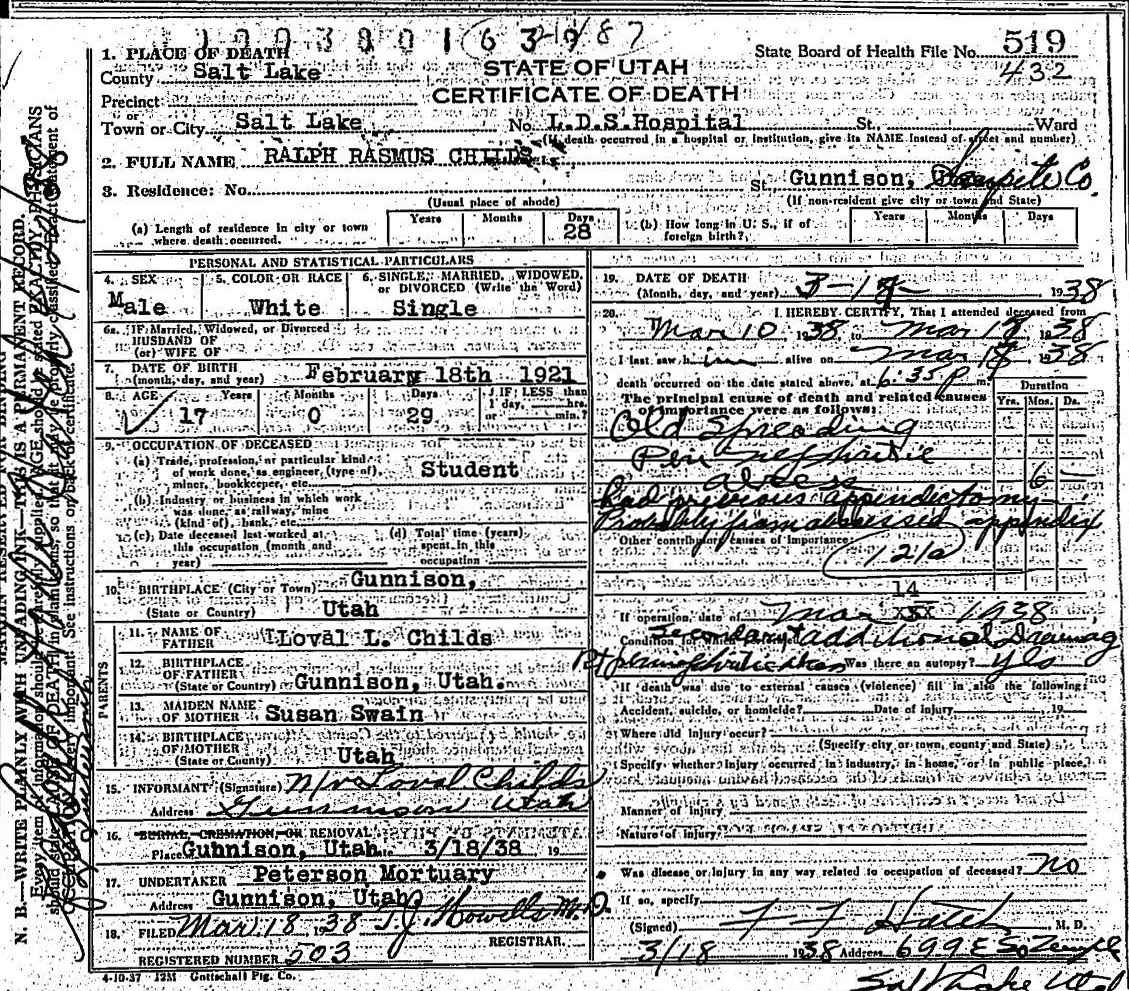 1003801639 2187
1. PLACE OF DEATH
State Board of Health File No. 519
County Salt Lake
STATE OF UTAH
432
Precinct
CERTIFICATE OF DEATH
or
Town or City Salt Lake No. L.D.S.Hospital St., Ward
(If death occurred in a hospital or institution, give its NAME instead of street and number)
2. FULL NAME RALPH RASMUS CHILDS
3. Residence: No. St. Gunnison, Sanpete Co.
(Usual place of abode) (If non-resident give city or town and State)
Years Months Days Years Months Days
(a) Length of residence in city or town where death occurred. 28 (b) How long in U. S., if of foreign birth?
PERSONAL AND STATISTICAL PARTICULARS
4. SEX 5. COLOR OR RACE 6. SINGLE, MARRIED, WIDOWED, or DIVORCED (Write the Word)
Male White Single
6a. If Married, Widowed, or Divorced
HUSBAND OF
(or) WIFE OF
7. DATE OF BIRTH
(month, day, and year) February 18th 1921
8. AGE Years Months Days If LESS than 1 day, hrs. or min.?
17 0 29
9. OCCUPATION OF DECEASED
(a) Trade, profession, or particular kind
of work done, as engineer, (type of), Student
miner, bookkeeper, etc.
(b) Industry or business in which work
was done, as railway, mine
(kind of), bank, etc.
(c) Date deceased last worked at this occupation (month and year) (d) Total time (years) spent in this occupation
10. BIRTHPLACE (City or Town) Gunnison,
(State or Country) Utah
PARENTS
11. NAME OF FATHER Loval L. Childs
12. BIRTHPLACE OF FATHER
(State or Country) Gunnison, Utah.
13. MAIDEN NAME OF MOTHER Susan Swain
14. BIRTHPLACE OF MOTHER
(State or Country) Utah
15. INFORMANT (Signature) Mr Loval Childs
Address Gunnison Utah
16. BURIAL, CREMATION, OR REMOVAL
Place Gunnison, Utah Date 3/18/38 19
17. UNDERTAKER Peterson Mortuary
Address Gunnison, Utah
18. FILED Mar. 18 1938 T.J. Howells M.D.
REGISTRAR.
REGISTERED NUMBER 503
4-10-37 12M Gottschall Ptg. Co.
19. DATE OF DEATH
(Month, day, and year) 3-18- 1938
20. I HEREBY CERTIFY, That I attended deceased from
Mar 10 1938 to Mar 18 1938
I last saw him alive on Mar 18 1938
death occurred on the date stated above, at 6:35 P m.
Duration
The principal cause of death and related causes Yrs. Mos. Ds.
of importance were as follows:
Old Spreading
Peri nephritic
abcess 6
had previous appendictomy
Probably from abscessed appendix
Other contributory causes of importance:
121a
14
If operation, date of Mar XXX 1938
Condition for which performed Secondary + additional Drainag
Was there an autopsy? yes
If death was due to external causes (violence) fill in also the following:
Accident, suicide, or homicide? Date of injury 19
Where did injury occur?
(Specify city or town, county and State)
Specify whether injury occurred in industry, in home, or in public place.
Manner of injury
Nature of injury
Was disease or injury in any way related to occupation of deceased? No
If so, specify
(Signed) F F Hatch M. D.
3/18 1938 Address 699 E So Temple
Salt Lake Utah
N. B.—WRITE PLAINLY WITH UNFADING INK—THIS IS A PERMANENT RECORD.